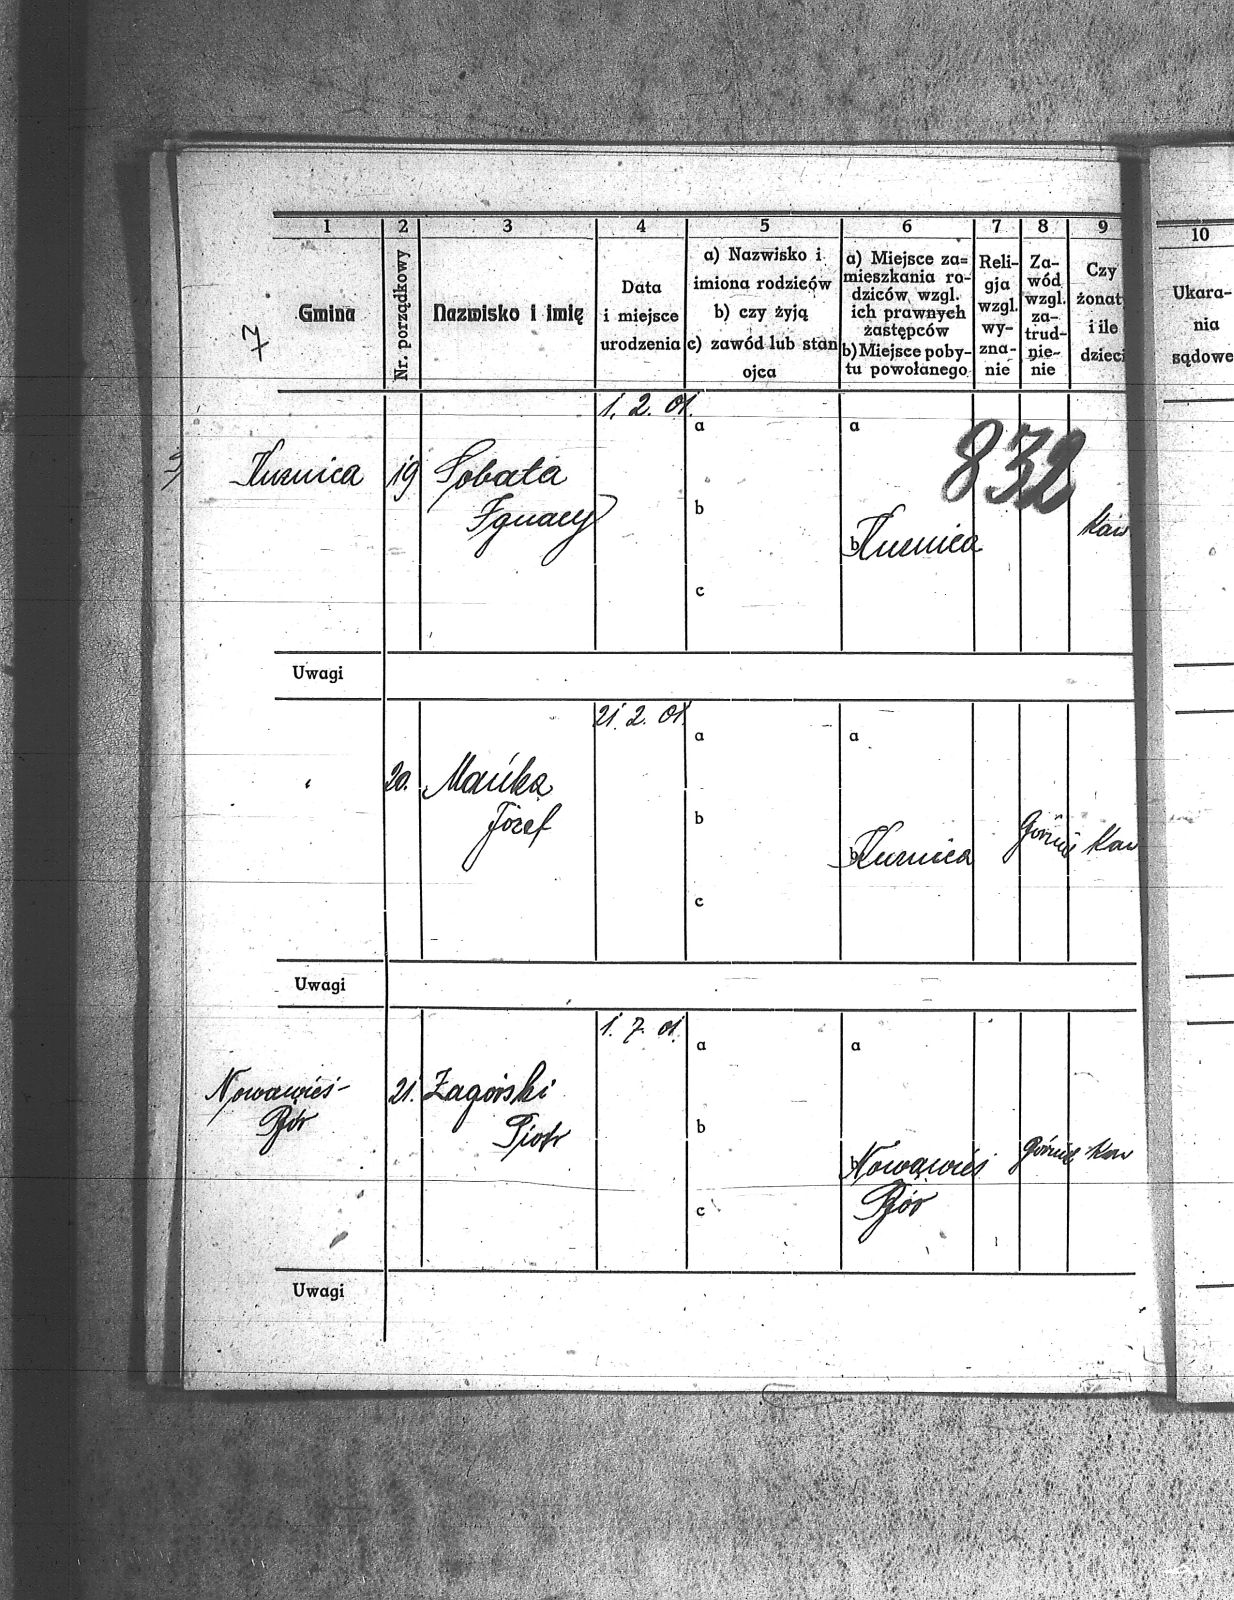 7
1 2 3 4 5 6 7 8 9
Gmina
Nr. porządkowy
Nazwisko i imię
Data
i miejsce
urodzenia
a) Nazwisko i
imiona rodziców
b) czy żyją
c) zawód lub stan
ojca
a) Miejsce za=
mieszkania ro-
dziców wzgl.
ich prawnych
zastępców
b) Miejsce poby-
tu powołanego
Reli-
gja
wzgl.
wy-
zna-
nie
Za-
wód
wzgl.
za-
trud-
nie-
nie
Czy
żonaty
i ile
dzieci
10
Ukara-
nia
sądowe
832
Kuznica 19 Sobata
Ignacy
1. 2. 01.
a
b
c
a
b Kuznica
Kaw
Uwagi
20. Mańka
Józef
21. 2. 01.
a
b
c
a
b Kuznica
Górnik
Kaw
Uwagi
Nowawieś-
21. Zagórski
Piotr
1. 7. 01.
a
b
c
a
b Nowawieś
Górnik
Kaw
Uwagi